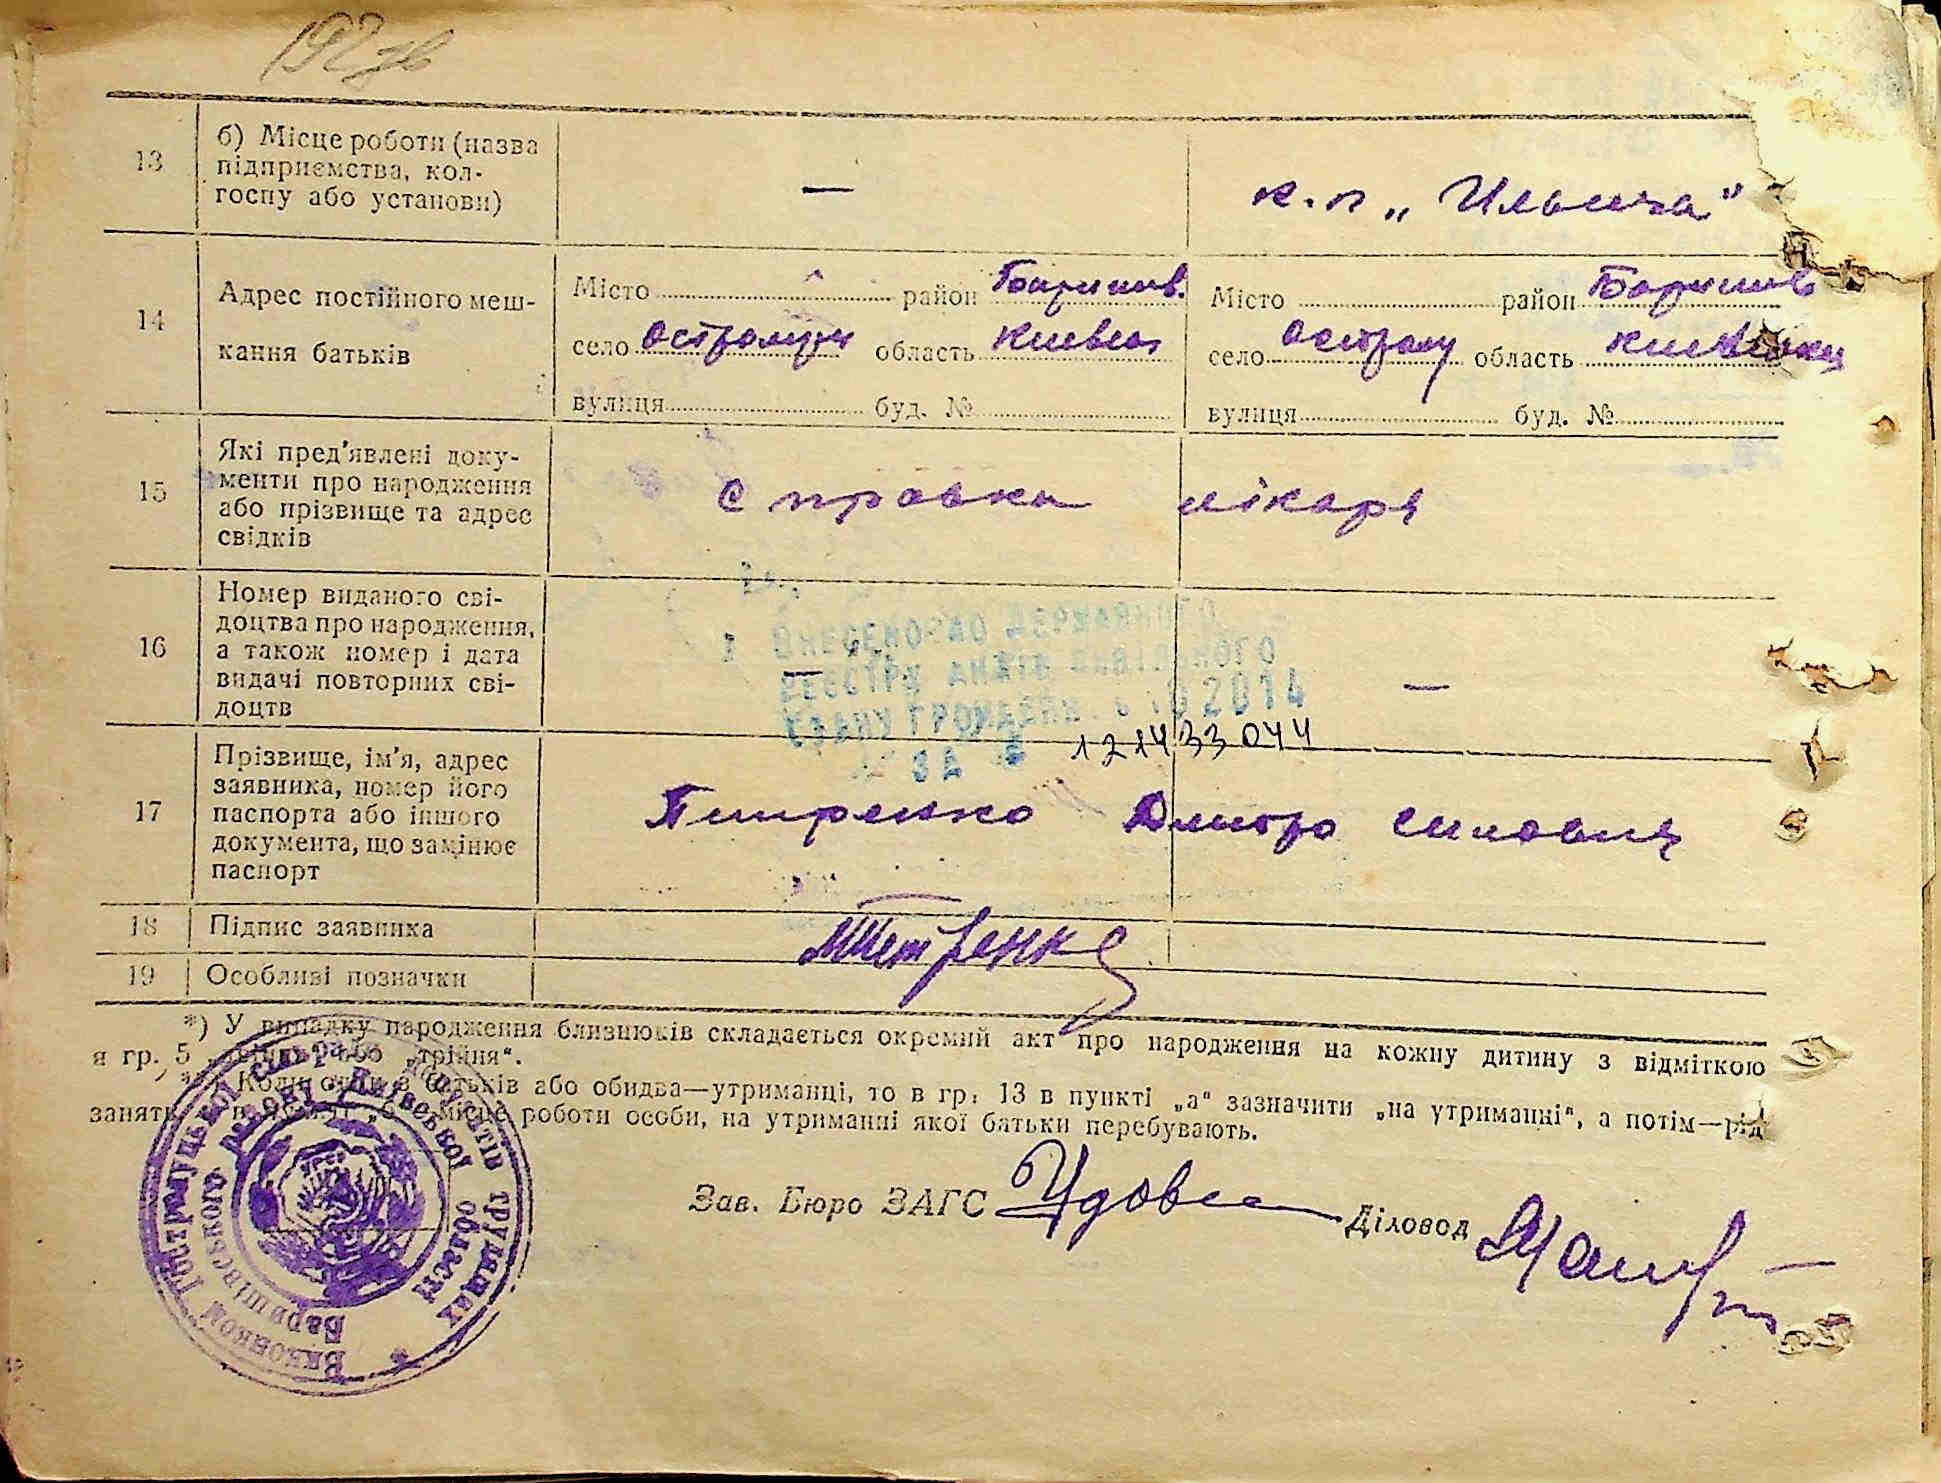 192 зв
13 б) Місце роботи (назва
підприємства, кол-
госпу або установи) — к.п „Ильича"
14 Адрес постійного меш-
кання батьків
Місто район Баришів. Місто район Баришів
село Остролуч область Киевск село Остролу область Киевськ
вулиця буд. № вулиця буд. №
15 Які пред'явлені доку-
менти про народження
або прізвище та адрес
свідків
Справка лікаря
16 Номер виданого сві-
доцтва про народження,
а також номер і дата
видачі повторних сві-
доцтв
— —
ВНЕСЕНО ДО ДЕРЖАВНОГО
РЕЄСТРУ АКТІВ ЦИВІЛЬНОГО
СТАНУ ГРОМАДЯН 2014
ЗА № 121433044
17 Прізвище, ім'я, адрес
заявника, номер його
паспорта або іншого
документа, що замінює
паспорт
Дмитро
18 Підпис заявника
19 Особливі позначки
*) У випадку народження близнюків складається окремий акт про народження на кожну дитину з відміткою
я гр. 5 „двійня" або „трійня".
**) Коли один з батьків або обидва—утриманці, то в гр. 13 в пункті „а" зазначити „на утриманні", а потім—рід
занять, а в пункті „б" місце роботи особи, на утриманні якої батьки перебувають.
Зав. Бюро ЗАГС Діловод
Виконком Остролуцької сільради депутатів трудящих
Баришівського району Київської області